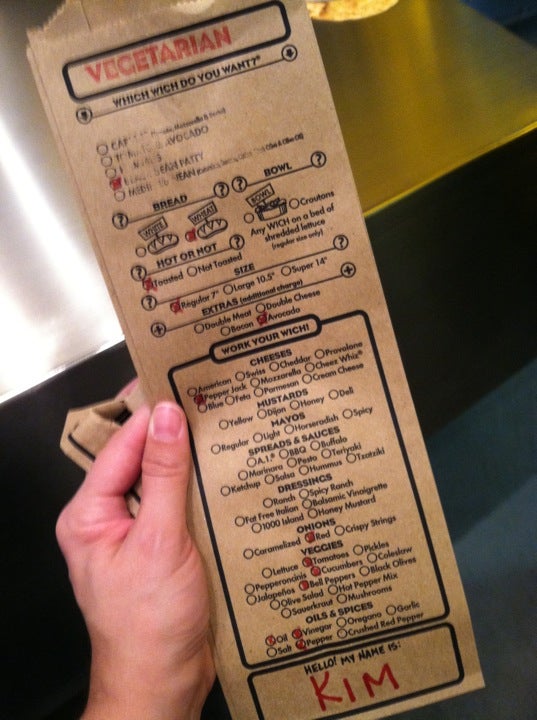 VEGETARIAN
WHICH WICH DO YOU WANT?
AVOCADO
PATTY
BREAD
BOWL
WHITE
WHEAT
BOWL
Croutons
Any WICH on a bed of
shredded lettuce
(regular size only)
HOT OR NOT
Toasted Not Toasted
SIZE
Regular 7" Large 10.5" Super 14"
EXTRAS (additional charge)
Double Meat Double Cheese
Bacon Avocado
WORK YOUR WICH!
CHEESES
American Swiss Cheddar Provolone
Pepper Jack Mozzarella Cheez Whiz®
Blue Feta Parmesan Cream Cheese
MUSTARDS
Yellow Dijon Honey Deli
MAYOS
Regular Light Horseradish Spicy
SPREADS & SAUCES
A.1.® BBQ Buffalo
Marinara Pesto Teriyaki
Ketchup Salsa Hummus Tzatziki
DRESSINGS
Ranch Spicy Ranch
Fat Free Italian Balsamic Vinaigrette
1000 Island Honey Mustard
ONIONS
Caramelized Red Crispy Strings
VEGGIES
Lettuce Tomatoes Pickles
Pepperoncinis Cucumbers Coleslaw
Jalapeños Bell Peppers Black Olives
Olive Salad Hot Pepper Mix
Sauerkraut Mushrooms
OILS & SPICES
Oil Vinegar Oregano Garlic
Salt Pepper Crushed Red Pepper
HELLO! MY NAME IS:
KIM